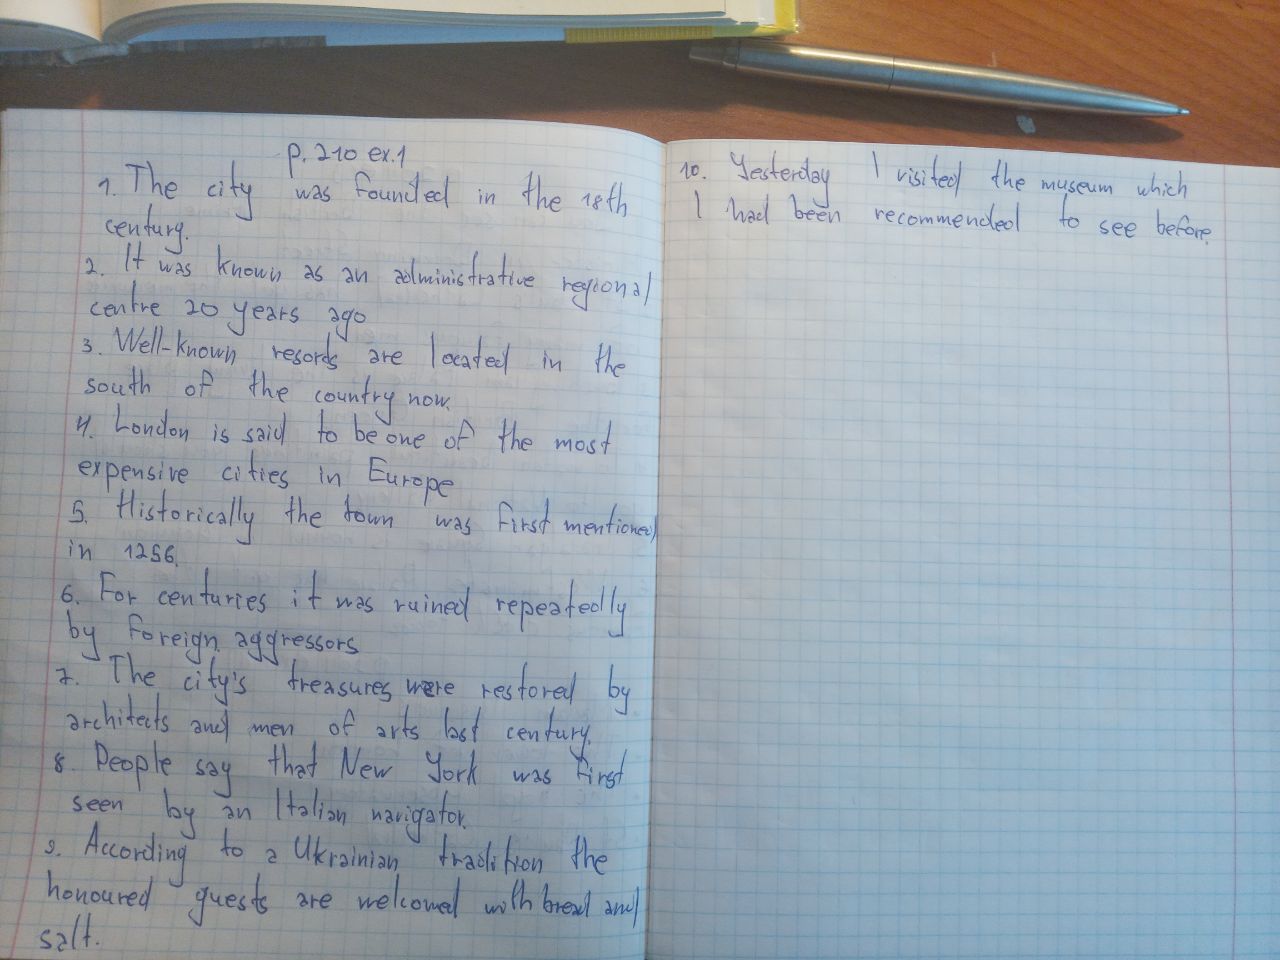 p. 210 ex.1
1. The city was founded in the 18th
century.
2. It was known as an administrative regional
centre 20 years ago
3. Well-known resords are located in the
south of the country now.
4. London is said to be one of the most
expensive cities in Europe
5. Historically the town was first mentioned
in 1256.
6. For centuries it was ruined repeatedly
by foreign aggressors
7. The city's treasures were restored by
architects and men of arts last century.
8. People say that New York was first
seen by an Italian navigator.
9. According to a Ukrainian tradition the
honoured guests are welcomed with bread and
salt.
10. Yesterday I visited the museum which
I had been recommended to see before.